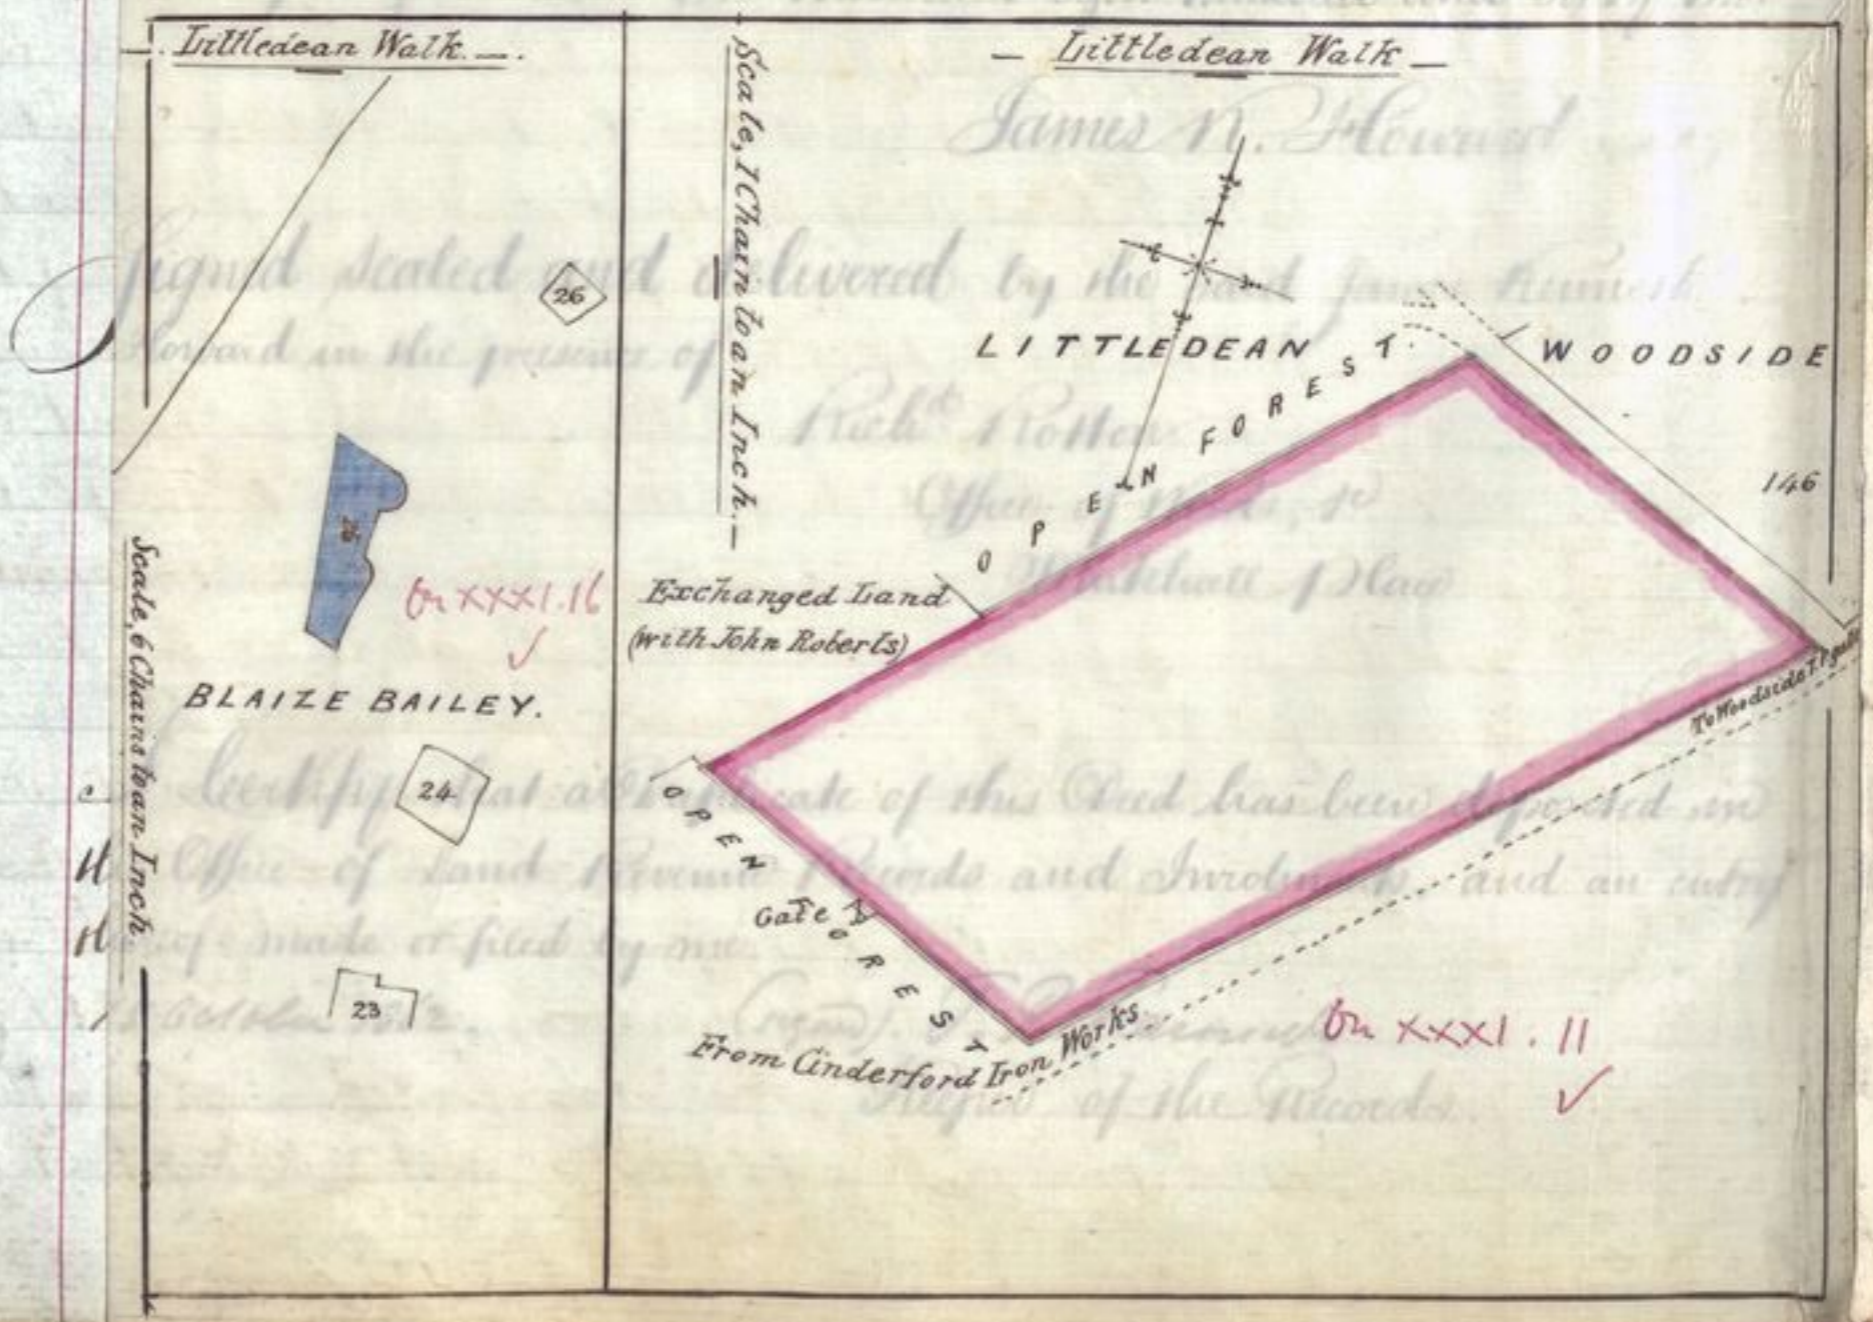 Littledean Walk.
Scale, 6 Chains to an Inch.
26
25
on XXXI.16
BLAIZE BAILEY.
24
23
Littledean Walk
Scale, 1 Chain to an Inch.
LITTLEDEAN WOODSIDE
OPEN FOREST
146
Exchanged Land
(with John Roberts)
To Woodside T.P. gate
OPEN FOREST
Gate
From Cinderford Iron Works
on XXXI.11
James K. Howard
Signed sealed and delivered by the said James Kenneth
Howard in the presence of
Richd
Office of Woods, &c
Whitehall Place
Certify that a Duplicate of this Deed has been deposited in
Office of Land Revenue Records and Inrolments and an entry
made or filed by me
(signed)
Keeper of the Records.